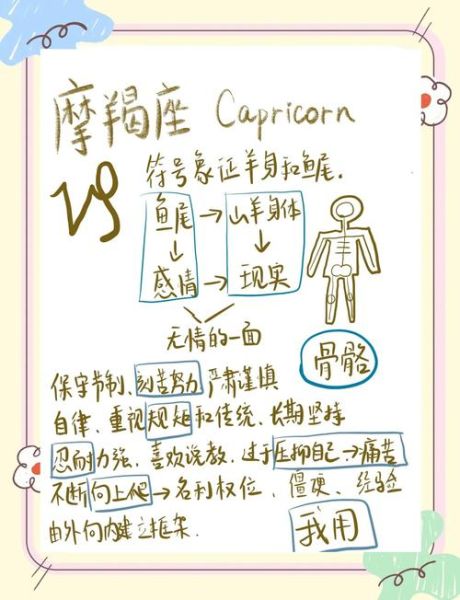 摩羯座 Capricorn
符号象征羊身和鱼尾.
鱼尾→山羊身体
↓ ↓
感情→现实
无情的一面
骨骼
保守节制、刻苦努力 严肃谨慎
自律、重视规矩和传统、长期坚持
忍耐力强、喜欢说教、过于压抑自己→痛苦
不断向上爬→名利权位、僵硬、经验
由外向内建立框架.
我用